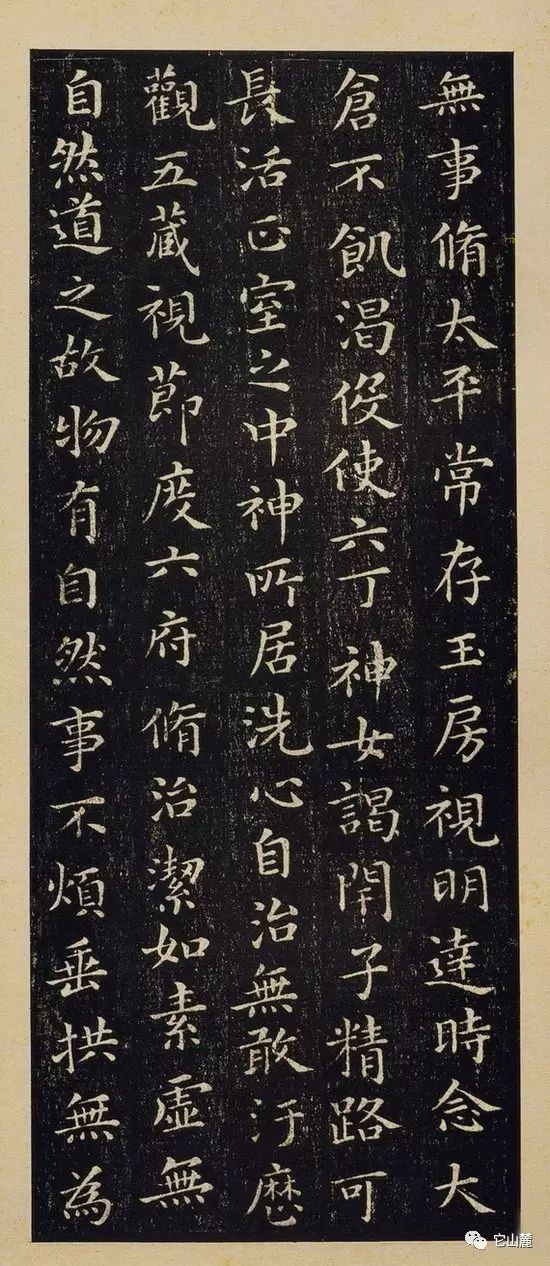 無事脩太平常存玉房視明達時念大
倉不飢渴役使六丁神女謁閇子精路可
長活正室之中神所居洗心自治無敢汙歷
觀五藏視節度六府脩治潔如素虛無
自然道之故物有自然事不煩垂拱無為
它山麓